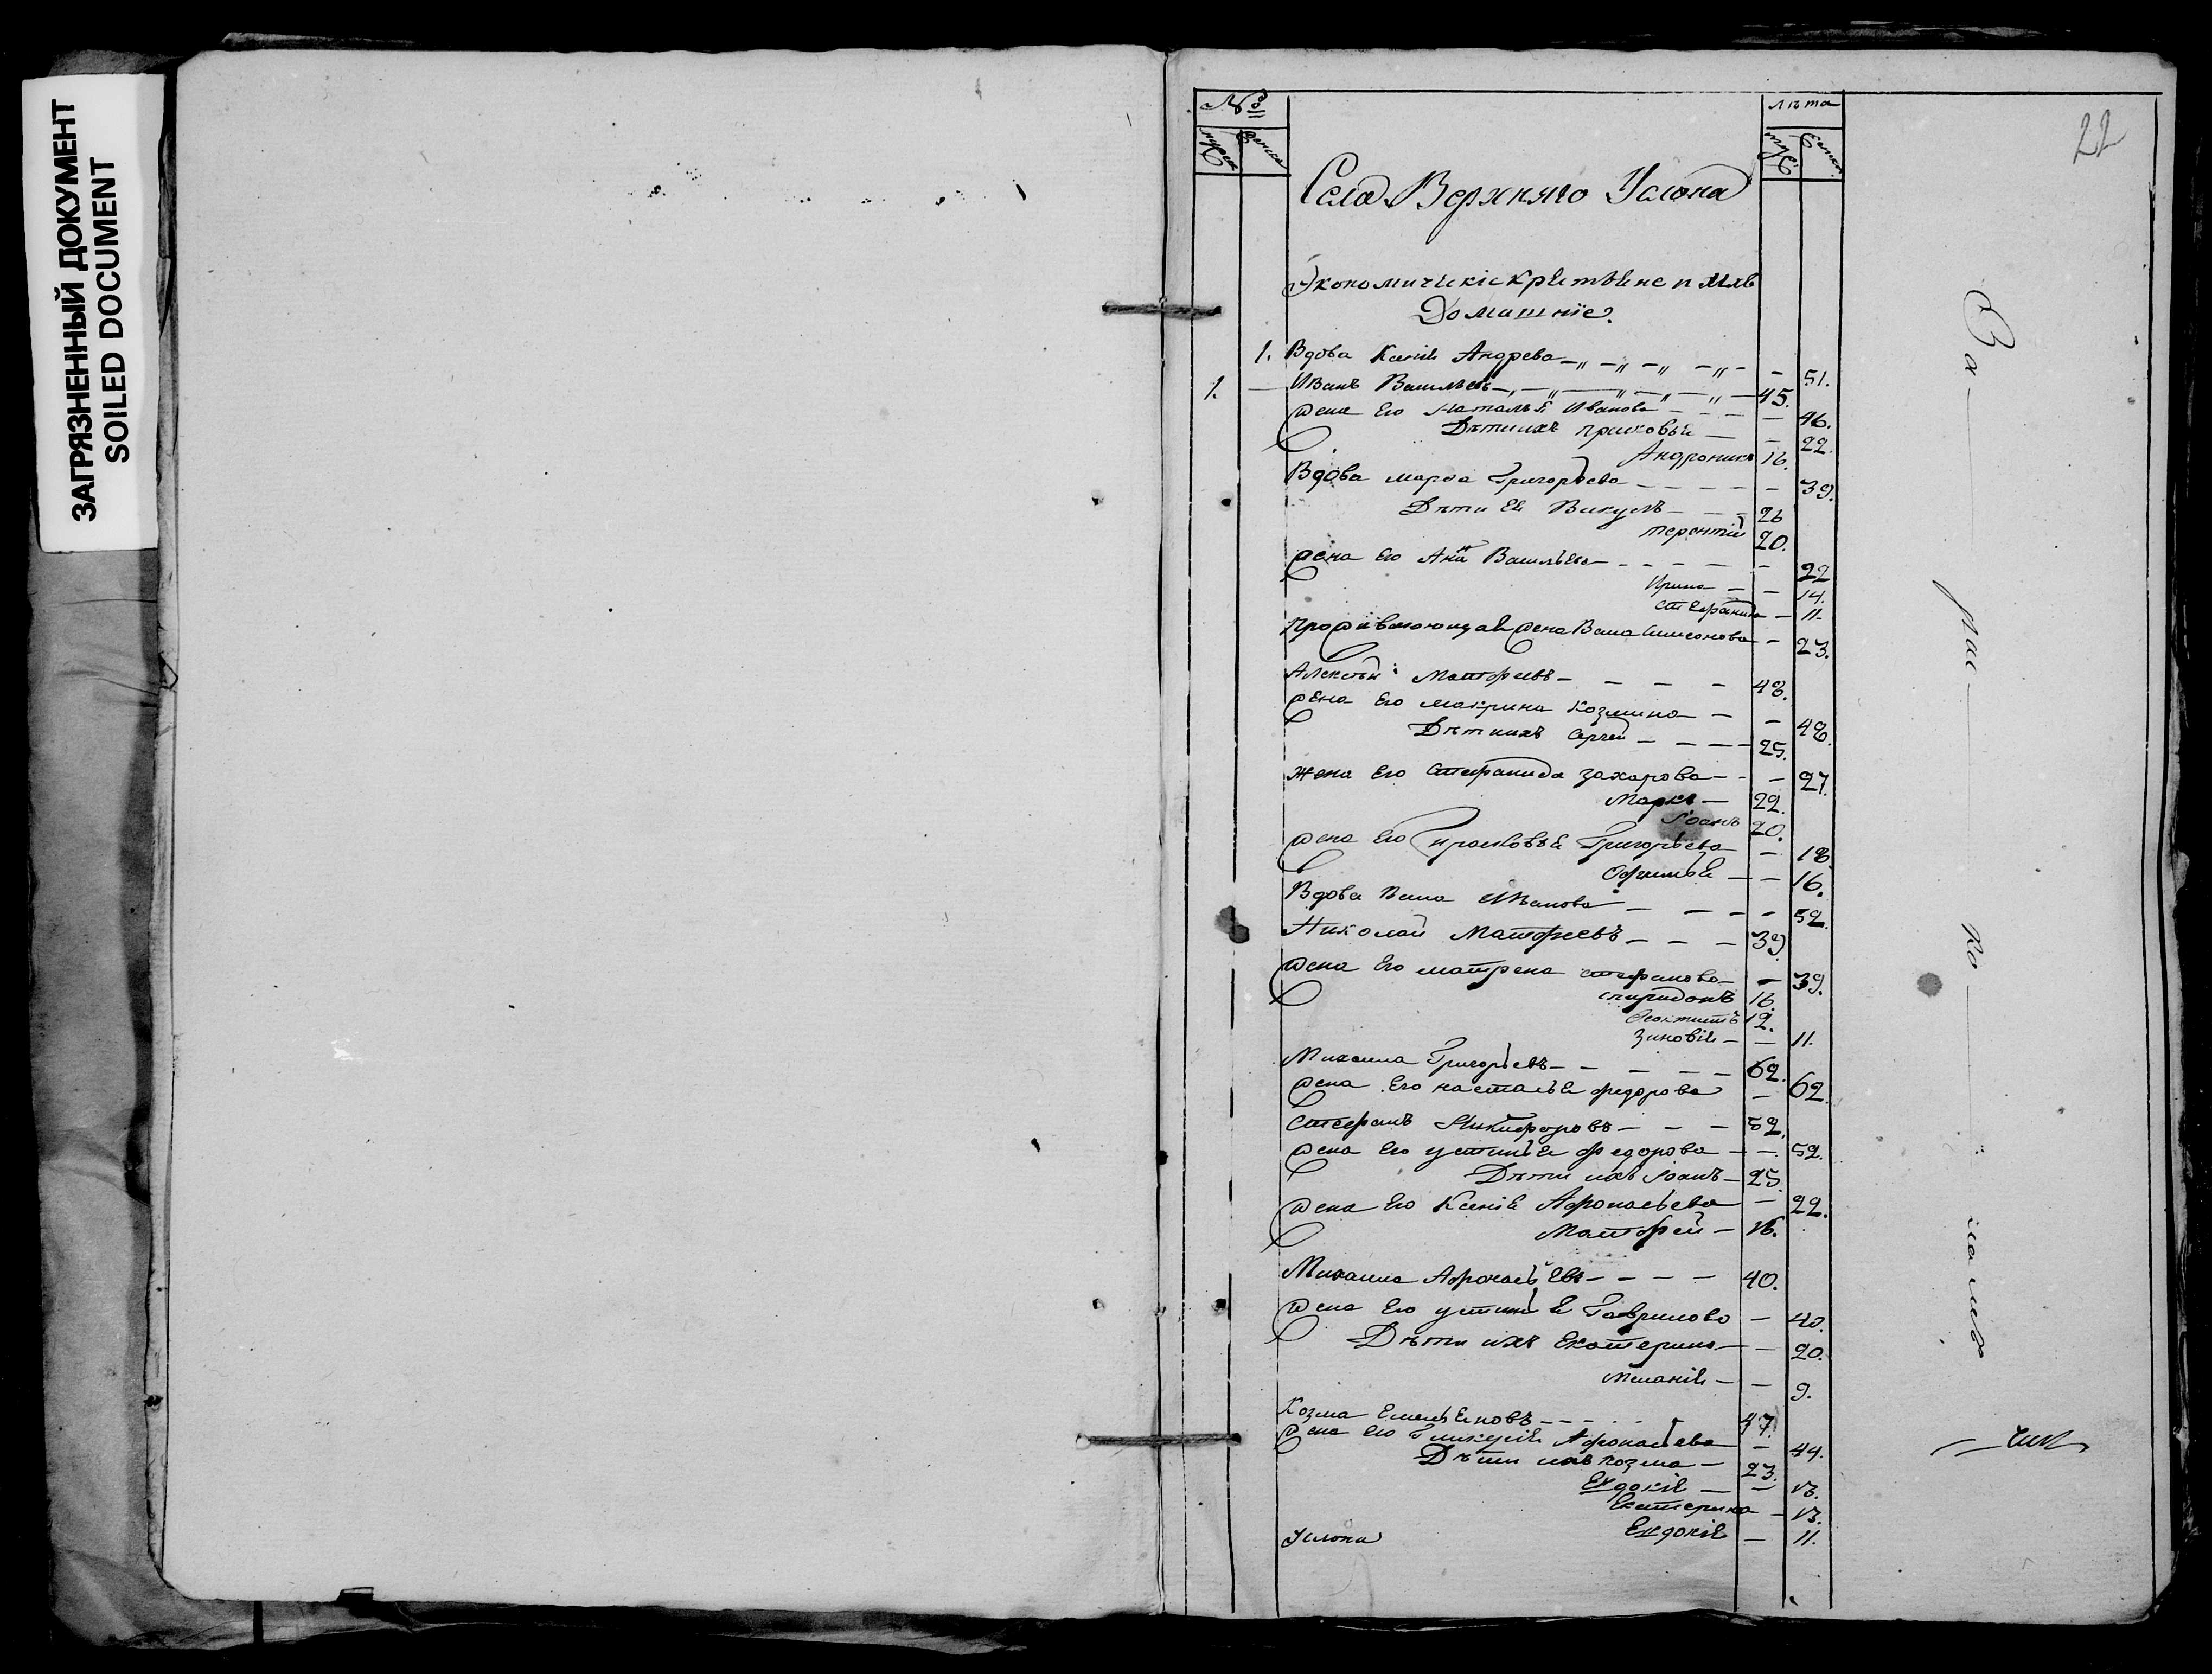 ЗАГРЯЗНЕННЫЙ ДОКУМЕНТ
SOILED DOCUMENT
22
№ Лѣта
Села Верхняго Услона
Экономическіе крестьяне и ихъ
Домашніе
1. Вдова Ксенія Андрева 51.
1. Иванъ Васильевъ 45.
жена его Наталья Иванова 46.
Дѣти ихъ Прасковья 22.
Андроникъ 16.
Вдова Марѳа Григорьева 39.
Дѣти ея Викулъ 26
Терентій 20.
жена его Анна Васильева 22
Ирина 14.
Стефанида 11.
жена Симеонова 23.
Алексѣй Матфеевъ 48.
жена его Макрина Козмина 48.
Дѣти ихъ Сергей 25.
жена его Стефанида Захарова 27.
Марко 22.
Іоанъ 20.
жена его Прасковья Григорьева 18.
Офимья 16.
Вдова Иванова 52.
Николай Матфеевъ 39.
жена его Матрена Стефанова 39.
Спиридонъ 16.
Феоктистъ 12.
Зиновія 11.
Михаила Григорьевъ 62.
жена его Настасья Федорова 62.
Стефанъ Никифоровъ 52.
жена его Устинья Федорова 52.
Дѣти ихъ Іоанъ 25.
жена его Ксенія Афонасьева 22.
Матфей 16.
Михаила Афонасьевъ 40.
жена его Устинья Гаврилова 40.
Дѣти ихъ Екатерина 20.
Меланія 9.
Козма Емельяновъ 47.
жена его Гликерія Афонасьева 44.
Дѣти ихъ Козма 23.
Евдокія 13.
Екатерина 13.
Евдокія 11.
Услона